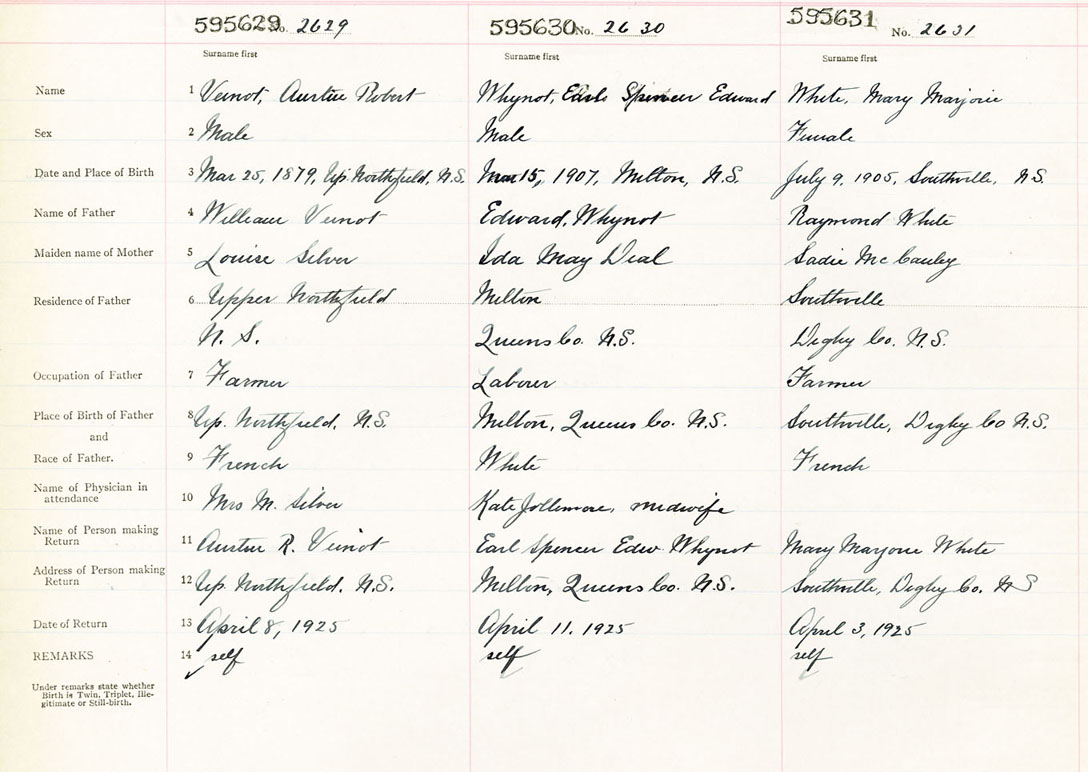 595629 No. 2629 595630 No. 2630 595631 No. 2631
Surname first Surname first Surname first
Name 1 Veinot, Austin Robert Whynot, Earle Spencer Edward White, Mary Marjorie
Sex 2 Male Male Female
Date and Place of Birth 3 Mar 25, 1879, Up. Northfield, N.S. Mar 15, 1907, Milton, N.S. July 9, 1905, Southville, N.S.
Name of Father 4 William Veinot Edward, Whynot Raymond White
Maiden name of Mother 5 Louise Silver Ida May Deal Sadie McCauley
Residence of Father 6 Upper Northfield Milton Southville
N. S. Queens Co. N.S. Digby Co. N.S.
Occupation of Father 7 Farmer Laborer Farmer
Place of Birth of Father 8 Up. Northfield, N.S. Milton, Queens Co. N.S. Southville, Digby Co N.S.
and
Race of Father. 9 French White French
Name of Physician in
attendance 10 Mrs M. Silver Kate Jollimore, midwife
Name of Person making
Return 11 Austin R. Veinot Earl Spencer Edw. Whynot Mary Marjorie White
Address of Person making
Return 12 Up. Northfield, N.S. Milton, Queens Co. N.S. Southville, Digby Co. N S
Date of Return 13 April 8, 1925 April 11, 1925 April 3, 1925
REMARKS 14 self self self
Under remarks state whether
Birth is Twin, Triplet, Ille-
gitimate or Still-birth.